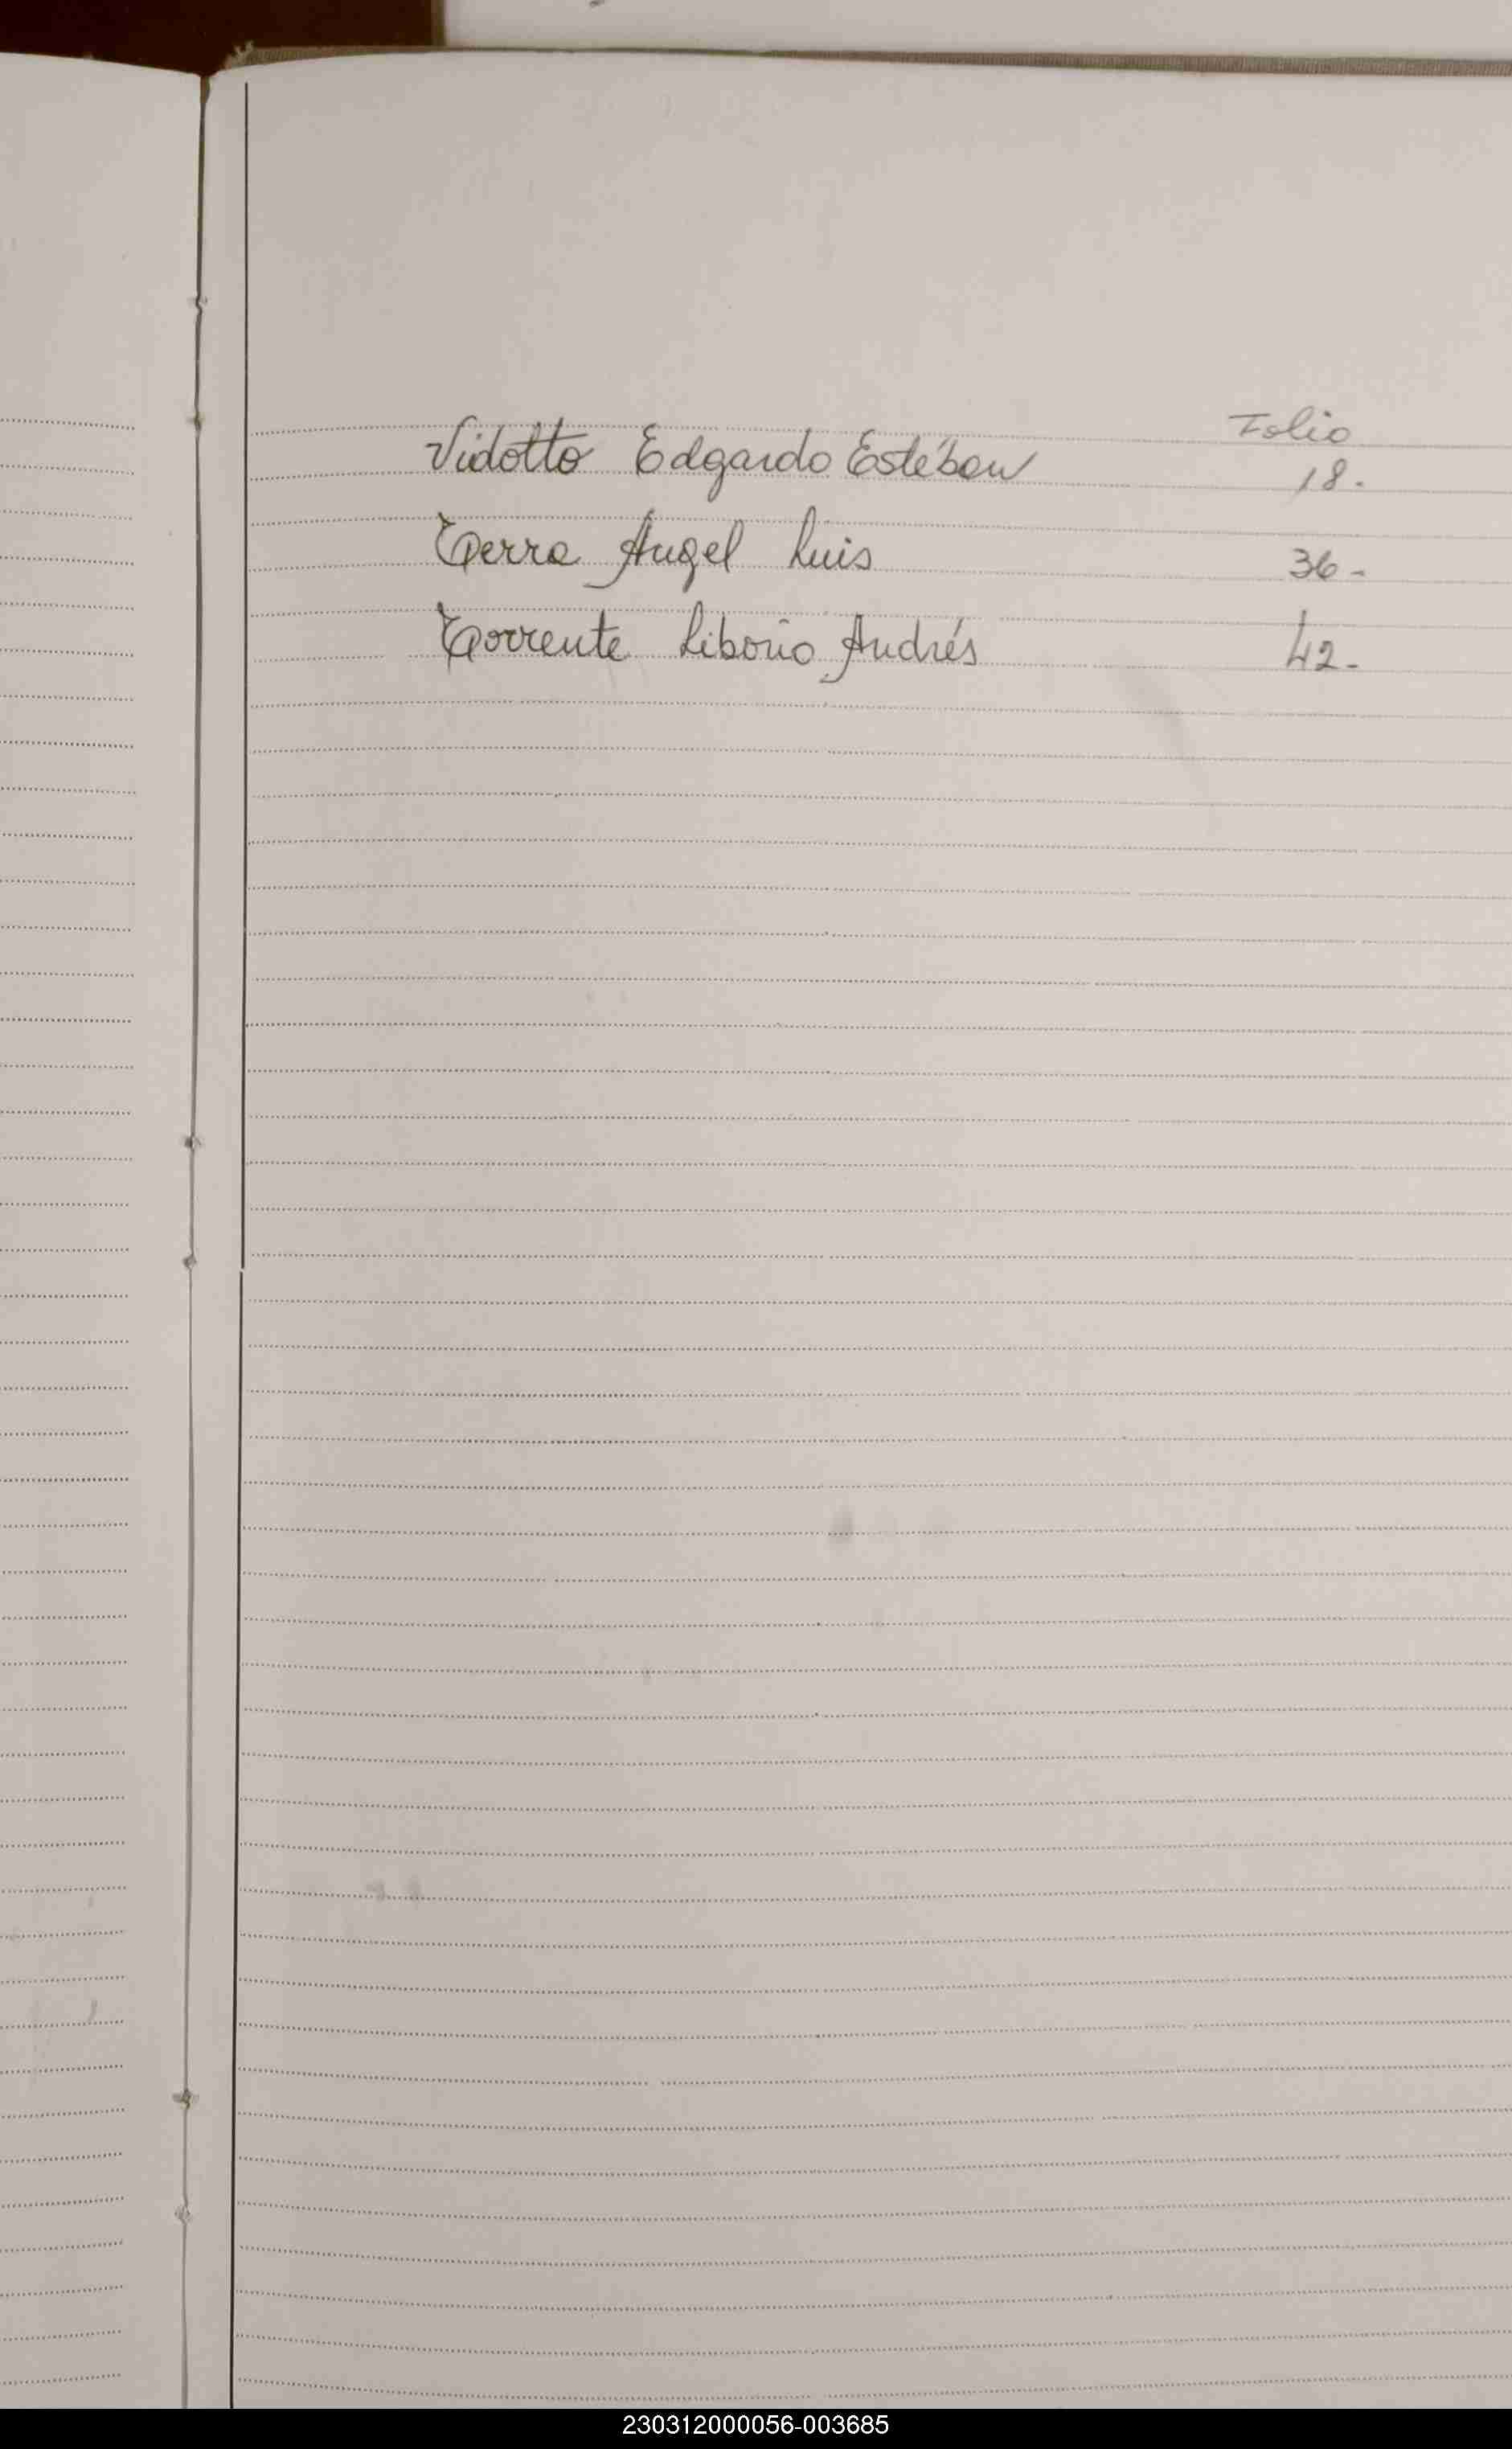 Folio
Vidotto Edgardo Estéban 18.
Terra Angel Luis 36-
Torrente Liborio Andrés 42-
230312000056-003685